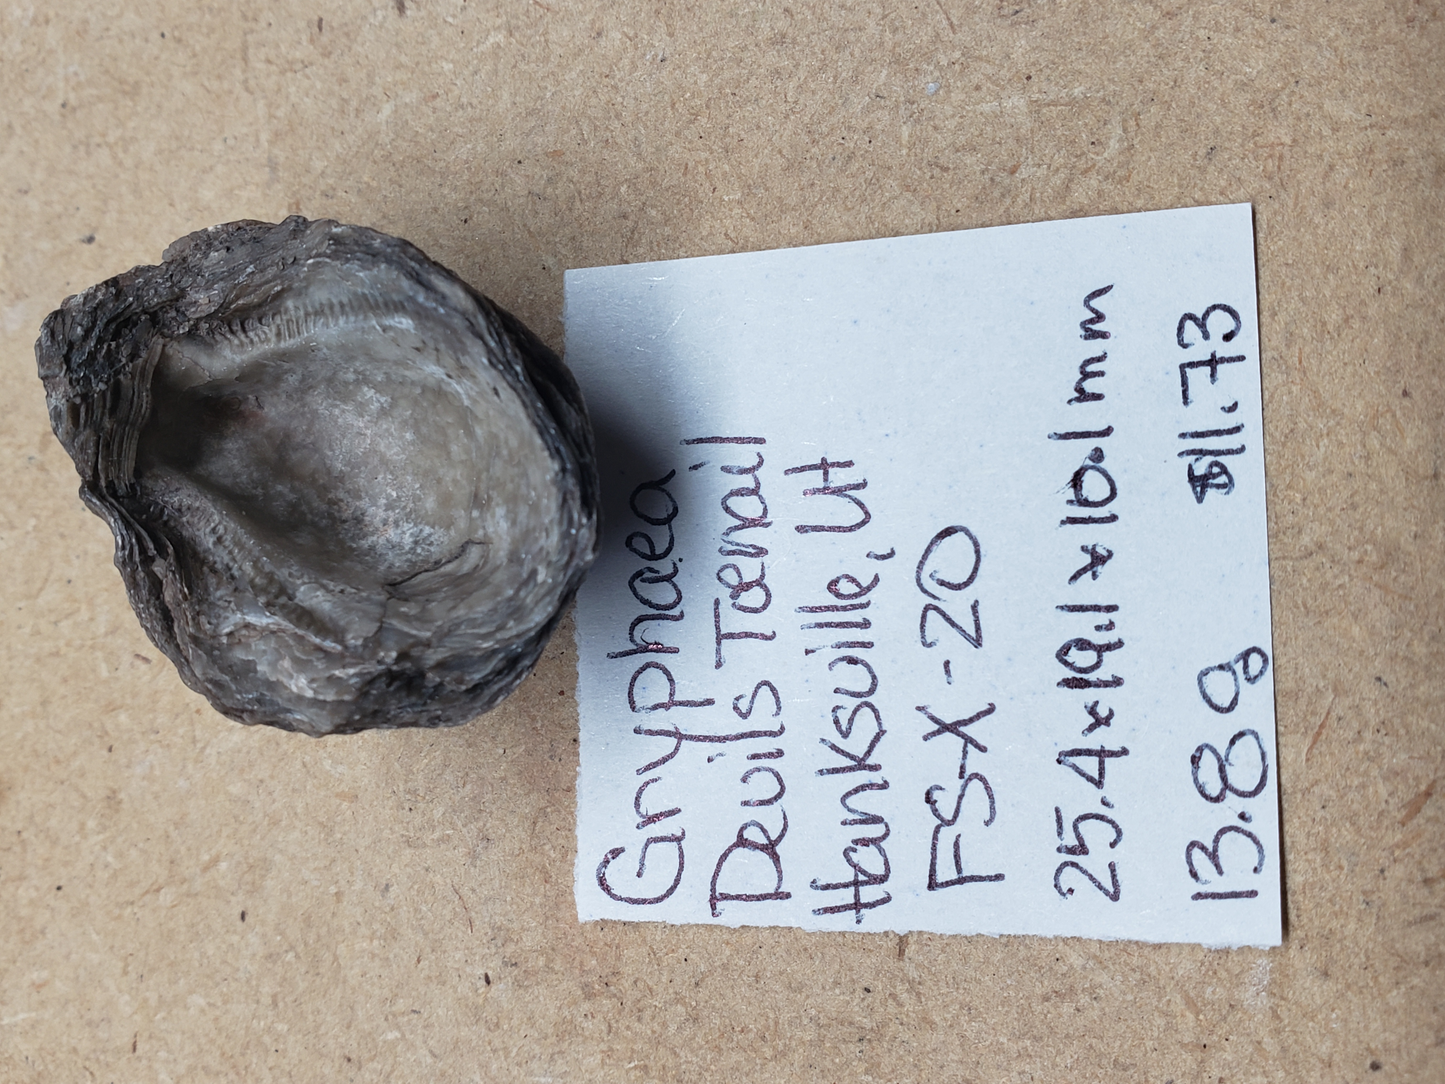 Gryphaea
Devils Toenail
Hanksville, Ut
FS-X-20
25.4x19.1x10.1mm
13.8g $11.73